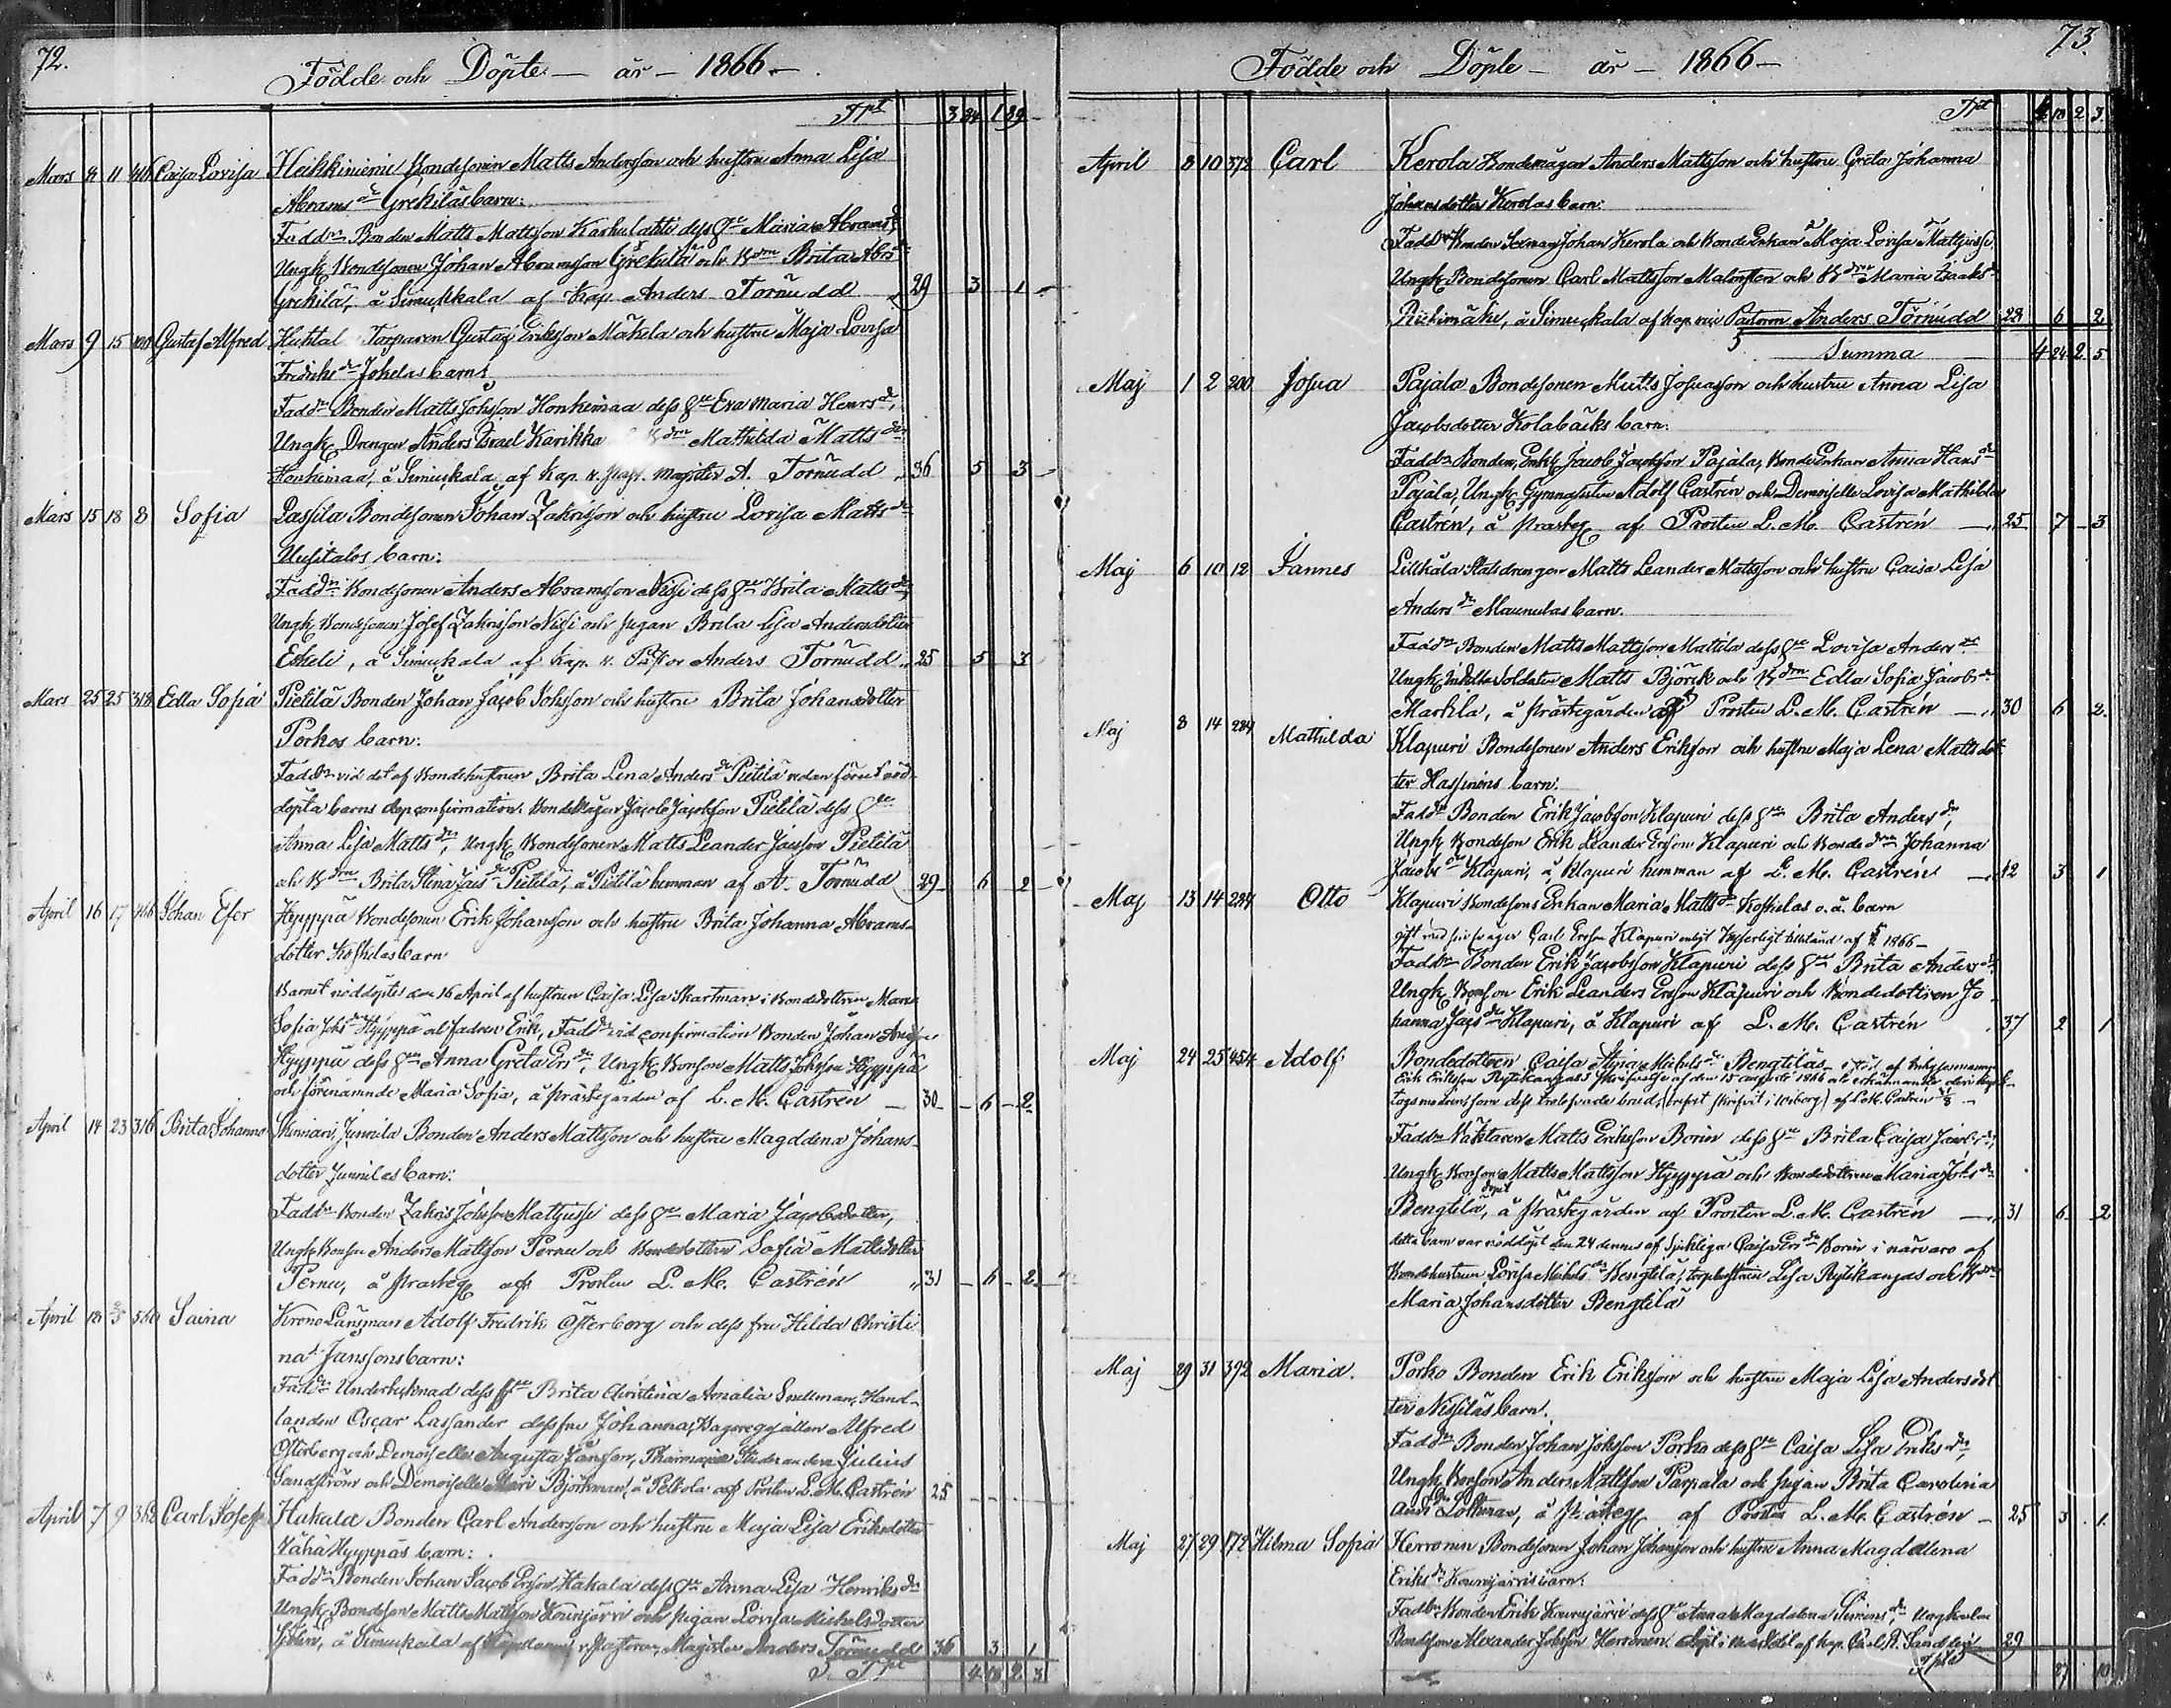 72.
Födde och Döpte — år — 1866 —
Trpt 3 24 1 29
Mars 11 Caisa Lovisa Heikkiniemi Bondesonen Matts Andersson och hustru Anna Lisa
Abrams dr Grekiläs barn:
Fadd. Bonden Matts Mattsson Karhulahti dess hu Maria Abrams dr
Ungk. Bondesonen Johan Abramsson Grekilä och B.drn Brita Abr. dr
Grekilä, å Simuskala af Kap. Anders Törnudd 29 3 1
Mars 9 15 Gustaf Alfred Torparen Gustaf Eriksson Mäkelä och hustru Maja Lovisa
Fredriks dr Jokelas barn:
Fadd. Bonden Matts Johsson Honkimaa dess hu Eva Maria Henrs dr,
Ungk. Drengen Anders Israel Karikka B.drn Mathilda Matts dr
Honkimaa, å Simuskala af Kap. v. past. Magister A. Törnudd 36 5 3
Mars 15 18 8 Sofia Lassila Bondesonen Johan Zakrisson och hustru Lovisa Matts dr
Uusitalos barn:
Fadd. Bondesonen Anders Abramsson Nisi dess hu Brita Matts dr,
Ungk. Bondesonen Josef Zakrisson Nisi och pigan Brita Lisa Andersdotter
Eskeli, å Simuskala af Kap. v. Pastor Anders Törnudd 25 5 3
Mars 25 25 318 Edla Sofia Pietilä Bonden Johan Jacob Johsson och hustru Brita Johansdotter
Porkos barn:
Fadd. vid det af Bondehustrun Brita Lena Anders dr Pietilä redan förut nöd
döpta barns dopconfirmation: Bondemågen Jacob Jacobsson Pietilä dess hu
Anna Lisa Matts dr, Ungk. Bondesonen Matts Leander Jacsson Pietilä
och B.drn Brita Stina Jacs dr Pietilä, å Pietilä hemman af A. Törnudd 29 6 2
April 16 17 Johan Efer Hyyppä Bondesonen Erik Johansson och hustru Brita Johanna Abrams-
dotter Koskelas barn
Barnet nöddöptes den 16 April af hustrun Caisa Lisa Skartman i Bondedottren Maria
Sofia Johs dr Hyyppä och fadren Erik, Fadd. vid confirmation Bonden Johan Andersson
Hyyppä dess hu Anna Greta Ers dr, Ungk. Bonson Matts Johsson Hyyppä
och förenämnde Maria Sofia, å prästegården af L. M. Castrén 30 6 2
April 14 23 316 Brita Johanna Skinnari Junnila Bonden Anders Mattsson och hustru Magdalena Johans-
dotter Junnilas barn:
Fadd. Bonden Zakris Johsson Matjussi dess hu Maria Jacobsdotter,
Ungk. Bonson Anders Mattsson Pernu och Bondedottren Sofia Mattsdotter
Pernu, å prästeg. af Prosten L. M. Castrén 31 6 2
April 18 3/5 Saima Krono Länsman Adolf Fredrik Österberg och dess fru Hilda Christi
na Janssons barn:
Fadd. Undertecknad dess fru Brita Christina Amalia Snellman, Hand-
landen Oscar Lassander dess fru Johanna, Bagaregesällen Alfred
Österberg och Demoiselle Augusta Jansson, Pharmacie Studeranden Julius
Sandström och Demoiselle Mari Björkman, å Peltola af Prosten L. M. Castrén 25
April 7 9 Carl Josef Hakala Bonden Carl Andersson och hustru Maja Lisa Eriksdotter
Vähä Hyyppäs barn:
Fadd. Bonden Johan Jacob Ersson Hakala dess hu Anna Lisa Henriks dr
Ungk. Bondeson Matts Mattsson Kounijärvi och pigan Lovisa Michelsdotter
å Simuskala af Kapellanen v. Pastoren, Magister Anders Törnudd 36 3 1
Trpt 4 18 2 3
73.
Födde och Döpte — år — 1866 —
Trpt 4 18 2 3
April 8 10 372 Carl Kerola Bondemågen Anders Mattsson och hustru Greta Johanna
Johansdotter Kerolas barn:
Fadd. Bonden Sexman Johan Kerola och Bonde Enkan Maja Lovisa Matjussi,
Ungk. Bondesonen Carl Mattsson Malmsten och B.drn Maria Isaks dr
Riihimäki, å Simuskala af Kap. vice Pastorn Anders Törnudd 28 6 2
Summa 4 24 2 5
Maj 1 2 200 Josua Pajala Bondesonen Matts Josuasson och hustru Anna Lisa
Jacobsdotter Kolabäcks barn:
Fadd. Bonden, Enkl. Jacob Jacobsson Pajala, Bonde Enkan Anna Hans dr
Pajala, Ungk. Gymnasisten Adolf Castrén och Demoiselle Lovisa Mathilda
Castrén, å prästeg. af Prosten L. M. Castrén 25 7 3
Maj 6 10 12 Jannes Lillkåla Statdrengen Matts Leander Mattsson och hustru Caisa Lisa
Anders dr Maunulas barn.
Fadd. Bonden Matts Mattsson Mattila dess hu Lovisa Anders dr
Ungk. Indelta Soldaten Matts Björck och B.drn Edla Sofia Jacobs dr
Markila, å prästegården af Prosten L. M. Castrén 30 6 2
Maj 8 14 284 Mathilda Klapuri Bondesonen Anders Eriksson och hustru Maja Lena Matts dot
ter Hassinens barn:
Fadd. Bonden Erik Jacobsson Klapuri dess hu Brita Anders dr,
Ungk. Bondeson Erik Leander Ersson Klapuri och Bonde drn Johanna
Jacobs dr Klapuri, å Klapuri hemman af L. M. Castrén 42 3 1
Maj 13 14 284 Otto Klapuri Bondesons Enkan Maria Matts dr Koskelas o. ä. barn
gift med sin svåger Carl Ersson Klapuri enligt Kejserligt tillstånd af 1866 —
Fadd. Bonden Erik Jacobsson Klapuri dess hu Brita Anders dr
Ungk. Bonson Erik Leanders Ersson Klapuri och Bondedottren Jo
hanna Jacs dr Klapuri, å Klapuri af L. M. Castrén 37 2 1
Maj 24 25 454 Adolf Bondedottren Caisa Stina Michels dr Bengtiläs
Erik Eriksson Rytikangas skriftelse af den 15 augusti 1866
togs modren som dess trolofvade brud,
Fadd. Väktaren Matts Eriksson Borin dess hu Brita Caisa Jacobs dr,
Ungk. Bonson Matts Mattsson Hyyppä och Bondedottren Maria Johs dr
Bengtilä, döpt å prästegården af Prosten L. M. Castrén 31 6 2
detta barn var nöddöpt den 24 dennes af Sjukliga Caisa Ers dr Borin i närvaro af
Bondehustrun Lovisa Michels dr Bengtilä, torphustrun Lisa Rytikangas och B.drn
Maria Johansdotter Bengtilä
Maj 29 31 392 Maria. Porko Bonden Erik Eriksson och hustru Maja Lisa Andersdot
ter Nissiläs barn.
Fadd. Bonden Johan Johsson Porko dess hu Caisa Lisa Eriks dr,
Ungk. Bonson Anders Mattsson Parpala och pigan Brita Carolina
Ands dr Lohteran, å prästeg. af Prosten L. M. Castrén 25 3 1
Maj 27 29 172 Hilma Sofia Herronen Bondesonen Johan Johansson och hustru Anna Magdalena
Eriks dr Kounijärvis barn:
Fadd. Bonden Erik Kounijärvi dess hu Anna Magdalena Simons dr, Ungkarlen
Bondeson Alexander Johsson Herronen. Döpt i af Kap. Carl R. Sandelin 29
Trpt 27 10